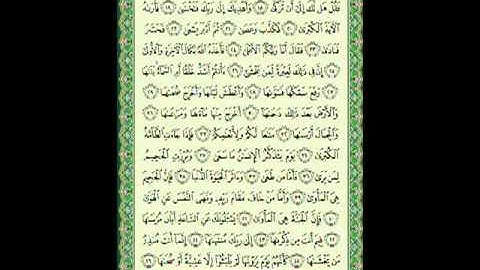 فَقُلْ هَل لَّكَ إِلَىٰٓ أَن تَزَكَّىٰ ١٨ وَأَهْدِيَكَ إِلَىٰ رَبِّكَ فَتَخْشَىٰ ١٩ فَأَرَىٰهُ
ٱلْءَايَةَ ٱلْكُبْرَىٰ ٢٠ فَكَذَّبَ وَعَصَىٰ ٢١ ثُمَّ أَدْبَرَ يَسْعَىٰ ٢٢ فَحَشَرَ
فَنَادَىٰ ٢٣ فَقَالَ أَنَا۠ رَبُّكُمُ ٱلْأَعْلَىٰ ٢٤ فَأَخَذَهُ ٱللَّهُ نَكَالَ ٱلْءَاخِرَةِ وَٱلْأُولَىٰٓ
٢٥ إِنَّ فِى ذَٰلِكَ لَعِبْرَةً لِّمَن يَخْشَىٰٓ ٢٦ ءَأَنتُمْ أَشَدُّ خَلْقًا أَمِ ٱلسَّمَآءُ ۚ بَنَىٰهَا
٢٧ رَفَعَ سَمْكَهَا فَسَوَّىٰهَا ٢٨ وَأَغْطَشَ لَيْلَهَا وَأَخْرَجَ ضُحَىٰهَا ٢٩
وَٱلْأَرْضَ بَعْدَ ذَٰلِكَ دَحَىٰهَآ ٣٠ أَخْرَجَ مِنْهَا مَآءَهَا وَمَرْعَىٰهَا ٣١
وَٱلْجِبَالَ أَرْسَىٰهَا ٣٢ مَتَٰعًا لَّكُمْ وَلِأَنْعَٰمِكُمْ ٣٣ فَإِذَا جَآءَتِ ٱلطَّآمَّةُ
ٱلْكُبْرَىٰ ٣٤ يَوْمَ يَتَذَكَّرُ ٱلْإِنسَٰنُ مَا سَعَىٰ ٣٥ وَبُرِّزَتِ ٱلْجَحِيمُ
لِمَن يَرَىٰ ٣٦ فَأَمَّا مَن طَغَىٰ ٣٧ وَءَاثَرَ ٱلْحَيَوٰةَ ٱلدُّنْيَا ٣٨ فَإِنَّ ٱلْجَحِيمَ
هِىَ ٱلْمَأْوَىٰ ٣٩ وَأَمَّا مَنْ خَافَ مَقَامَ رَبِّهِۦ وَنَهَى ٱلنَّفْسَ عَنِ ٱلْهَوَىٰ
٤٠ فَإِنَّ ٱلْجَنَّةَ هِىَ ٱلْمَأْوَىٰ ٤١ يَسْـَٔلُونَكَ عَنِ ٱلسَّاعَةِ أَيَّانَ مُرْسَىٰهَا
٤٢ فِيمَ أَنتَ مِن ذِكْرَىٰهَآ ٤٣ إِلَىٰ رَبِّكَ مُنتَهَىٰهَآ ٤٤ إِنَّمَآ أَنتَ مُنذِرُ
مَن يَخْشَىٰهَا ٤٥ كَأَنَّهُمْ يَوْمَ يَرَوْنَهَا لَمْ يَلْبَثُوٓا۟ إِلَّا عَشِيَّةً أَوْ ضُحَىٰهَا ٤٦